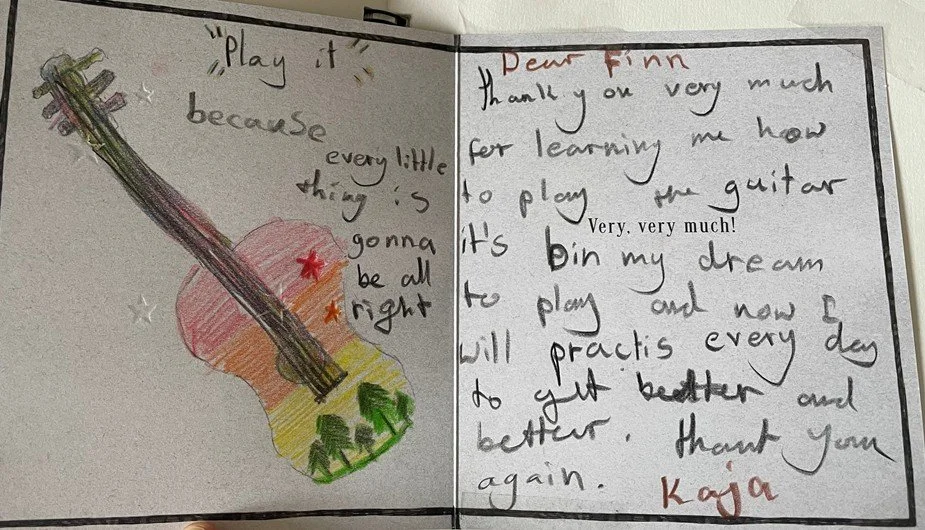 "Play it"
because
every little
thing is
gonna
be all
right
Dear Finn
thank you very much
for learning me how
to play the guitar
Very, very much!
it's bin my dream
to play and now I
will practis every day
to get better and
better. thank you
again.
Kaja